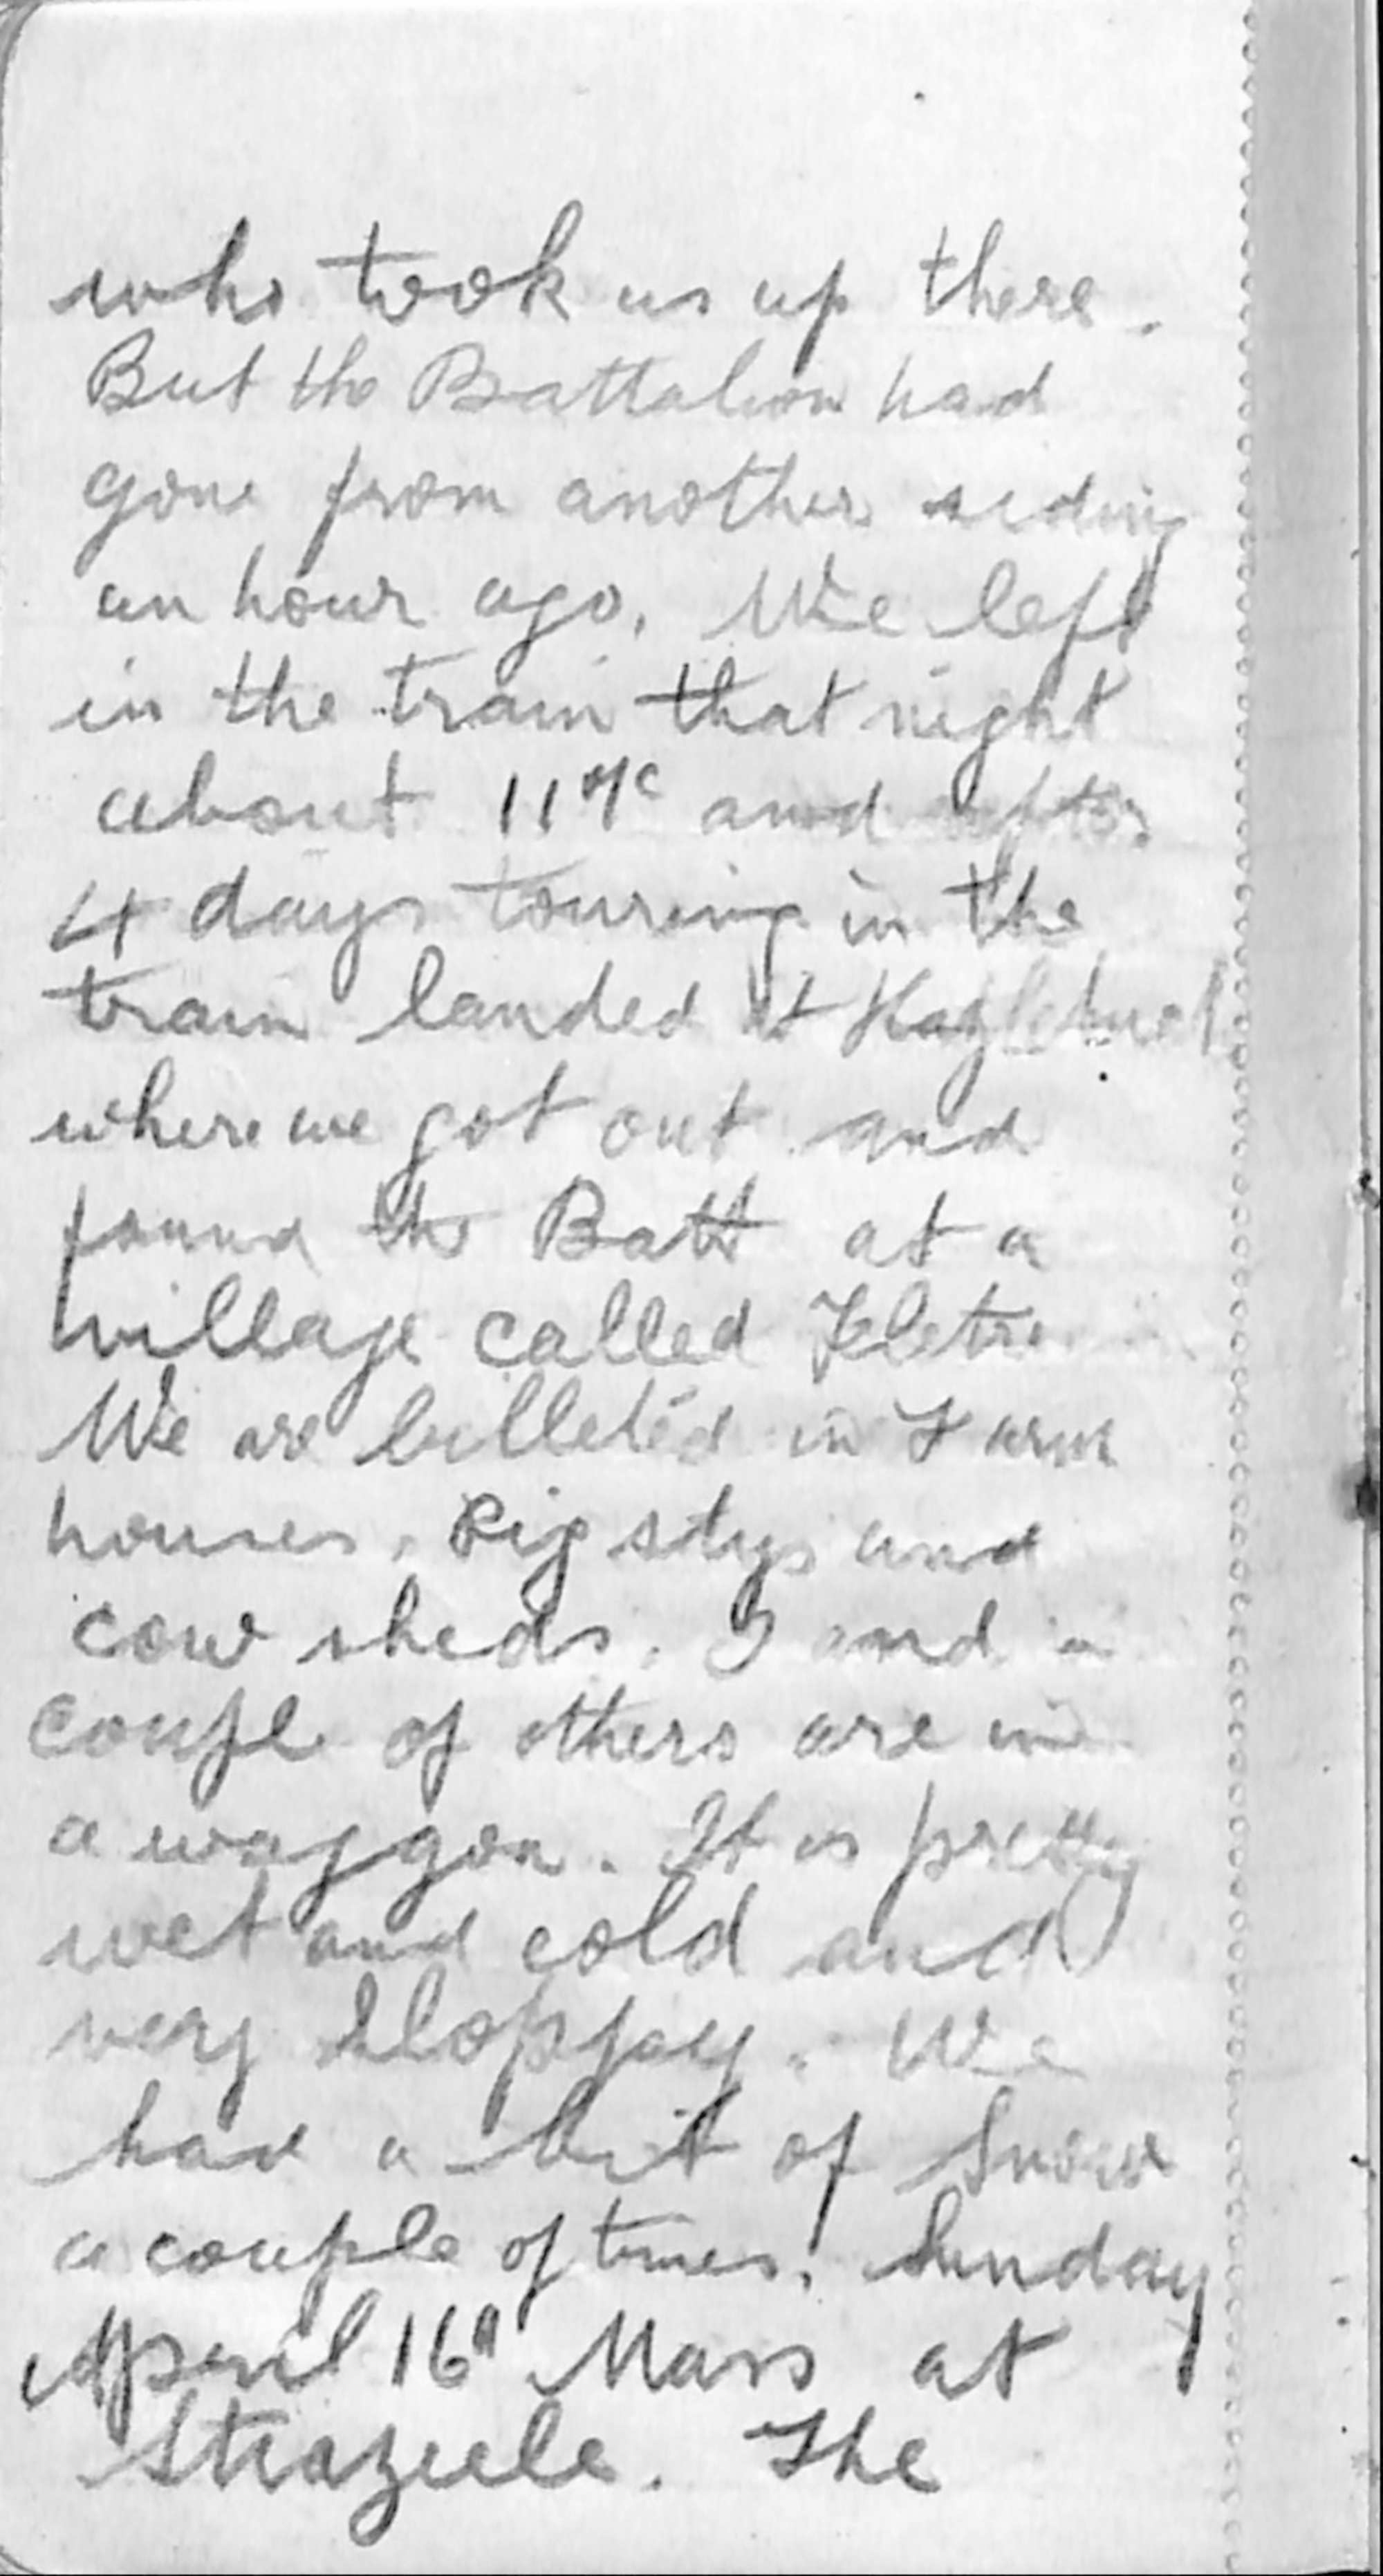 who took us up there.
But the Battalion had
gone from another siding
an hour ago. We left
in the train that night
about 11 o/c and after
4 days touring in the
train landed at
where we got out and
found the Batt at a
village called Fletre
We are billeted in Farm
houses, Pig stys and
cow sheds. I and a
couple of others are in
a waggon. It is pretty
wet and cold and
very sloppy. We
had a bit of Snow
a couple of times. Sunday
April 16" Mass at
Strazeele. The